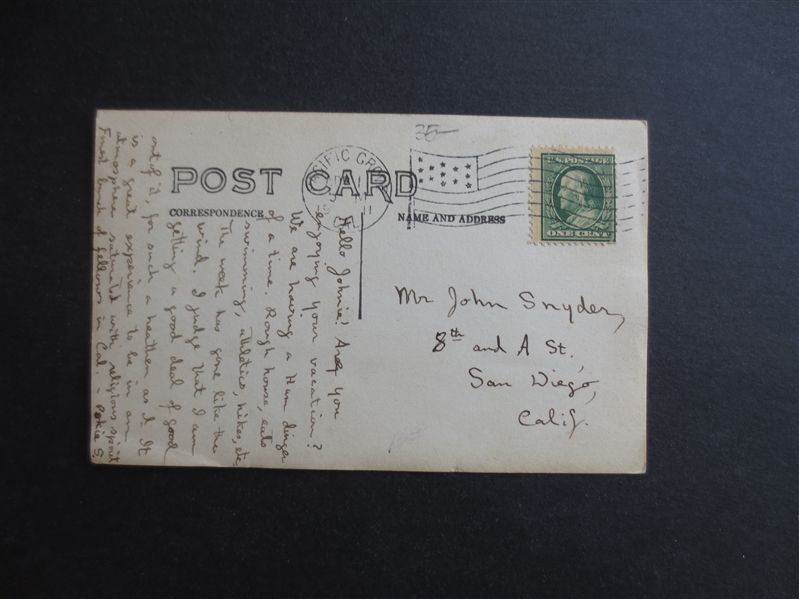 35-
POST CARD
CORRESPONDENCE
NAME AND ADDRESS
U.S. POSTAGE
ONE CENT
Hello Johnie! Are you
enjoying your vacation?
We are having a Hum dinger
of a time. Rough house, eats
swimming, athletics, hikes, etc.
The week has gone like the
wind. I judge that I am
getting a good deal of good
out of it, for such a heathen as I. It
is a great experience to be in an
atmosphere saturated with religious spirit
Finest bunch of fellows in Cal. - Pokie S.
Mr John Snyder,
8th and A St.,
San Diego,
Calif.